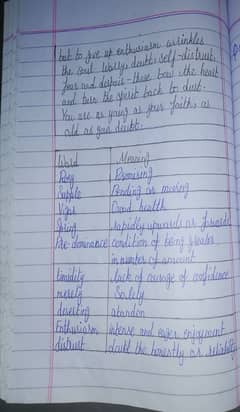 but to give up enthusiasm wrinkles
the soul. Worry, doubt, self-distrust,
fear and despair - these bow the heart
and turn the spirit back to dust.
You are as young as your faith, as
old as your doubt.
Word Meaning
Rosy Promising
Supple Bending or moving
Vigor Good health
Spring rapidly upwards or forwards
Pre dominance condition of being greater
in number of amount
timidity lack of courage of confidence
merely Solely
deserting abandon
Enthusiasm intense and eager enjoyment
distrust doubt the honestly or reliable